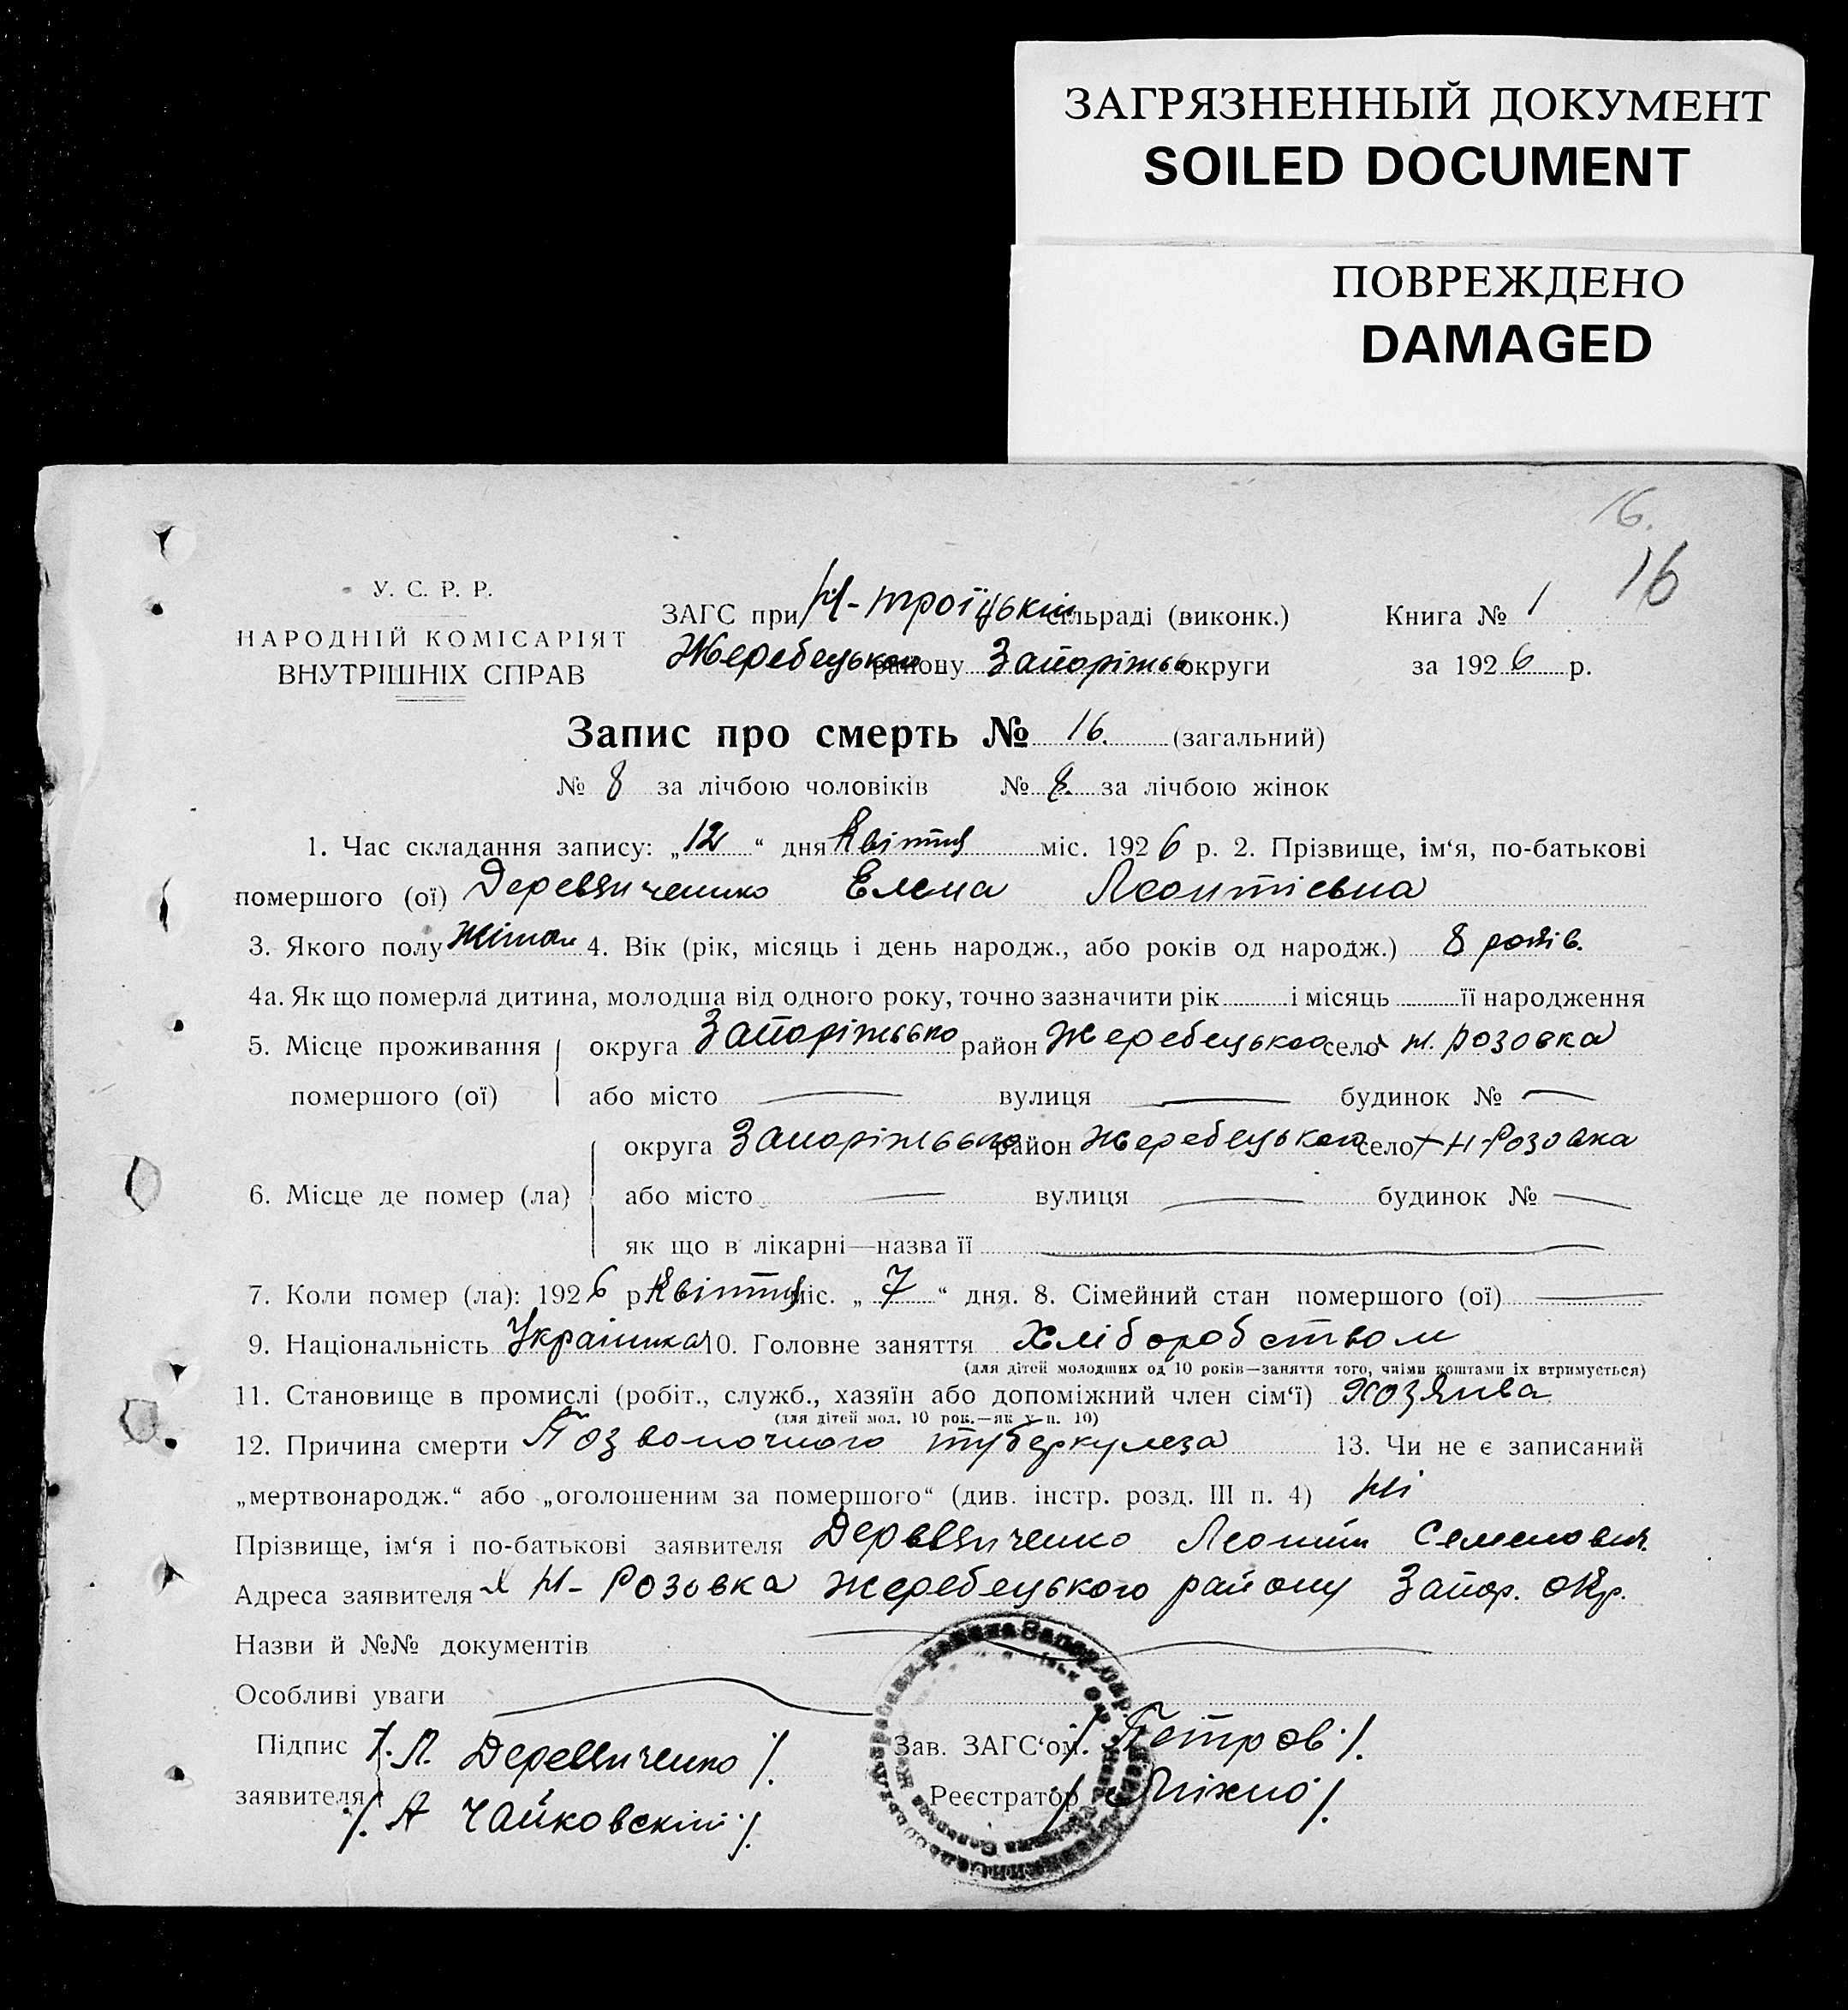 ЗАГРЯЗНЕННЫЙ ДОКУМЕНТ
SOILED DOCUMENT
ПОВРЕЖДЕНО
DAMAGED
16.
16
У. С. Р. Р.
НАРОДНІЙ КОМІСАРІЯТ
ВНУТРІШНІХ СПРАВ
ЗАГС при Н-троїцькій сільраді (виконк.) Книга № 1
Жеребецького району Запоріжсь округи за 1926 р.
Запис про смерть № 16. (загальний)
№ 8 за лічбою чоловіків № 8. за лічбою жінок
1. Час складання запису: „12“ дня Квітня міс. 1926 р. 2. Прізвище, ім‘я, по-батькові
помершого (ої) Деревянченко Елена Леонтієвна
3. Якого полу 4. Вік (рік, місяць і день народж., або років од народж.) 8 років.
4а. Як що померла дитина, молодша від одного року, точно зазначити рік і місяць її народження
5. Місце проживання округа Запоріжсько район Жеребецького село х Н. Розовка
помершого (ої) або місто — вулиця — будинок № —
округа Запоріжсько район Жеребецького село х Н Розовка
6. Місце де помер (ла) або місто — вулиця — будинок № —
як що в лікарні—назва її —
7. Коли помер (ла): 1926 р Квітня міс. „7“ дня. 8. Сімейний стан помершого (ої) —
9. Національність Українка 10. Головне заняття Хліборобством
(для дітей молодших од 10 років—заняття того, чиїми коштами їх втримується)
11. Становище в промислі (робіт., служб., хазяїн або допоміжний член сім‘ї) Хозяїва
(для дітей мол. 10 рок.—як у п. 10)
12. Причина смерти Позвоночного туберкулеза 13. Чи не є записаний
„мертвонародж.“ або „оголошеним за помершого“ (див. інстр. розд. III п. 4) Ні
Прізвище, ім‘я і по-батькові заявителя Деревянченко Леонтій Семенович
Адреса заявителя х Н- Розовка Жеребецького району Запор. окр.
Назви й №№ документів
Особливі уваги
Підпис /. Л. Деревянченко /. Зав. ЗАГС‘ом. / Петров /.
заявителя /. А Чайковскій /. Реєстратор / /.